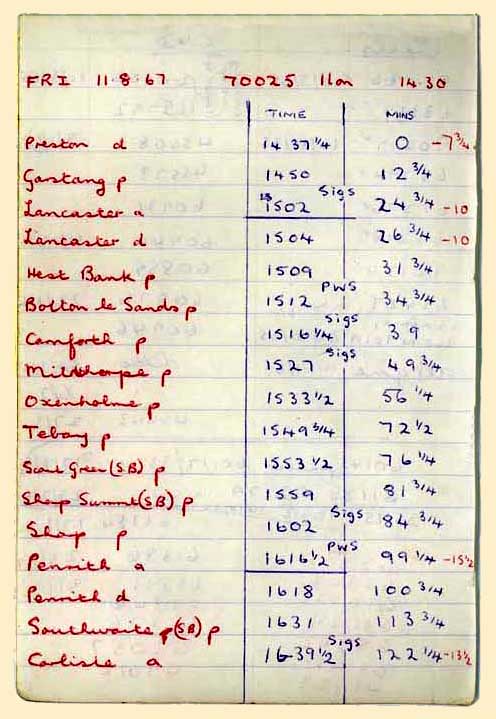 FRI 11-8-67 70025 11on 14.30
TIME MINS
Preston d 1437 1/4 0 -7 3/4
Garstang p 1450 12 3/4
Sigs
Lancaster a 1502 24 3/4 -10
Lancaster d 1504 26 3/4 -10
Hest Bank p 1509 31 3/4
PWS
Bolton le Sands p 1512 34 3/4
Sigs
Carnforth p 1516 1/4 39
Sigs
Milnthorpe p 1527 49 3/4
Oxenholme p 1533 1/2 56 1/4
Tebay p 1549 3/4 72 1/2
Scout Green (SB) p 1553 1/2 76 1/4
Shap Summit (SB) p 1559 81 3/4
Sigs
Shap p 1602 84 3/4
PWS
Penrith a 1616 1/2 99 1/4 -15 1/2
Penrith d 1618 100 3/4
Southwaite p (SB) p 1631 113 3/4
Sigs
Carlisle a 1639 1/2 122 1/4 -13 1/2